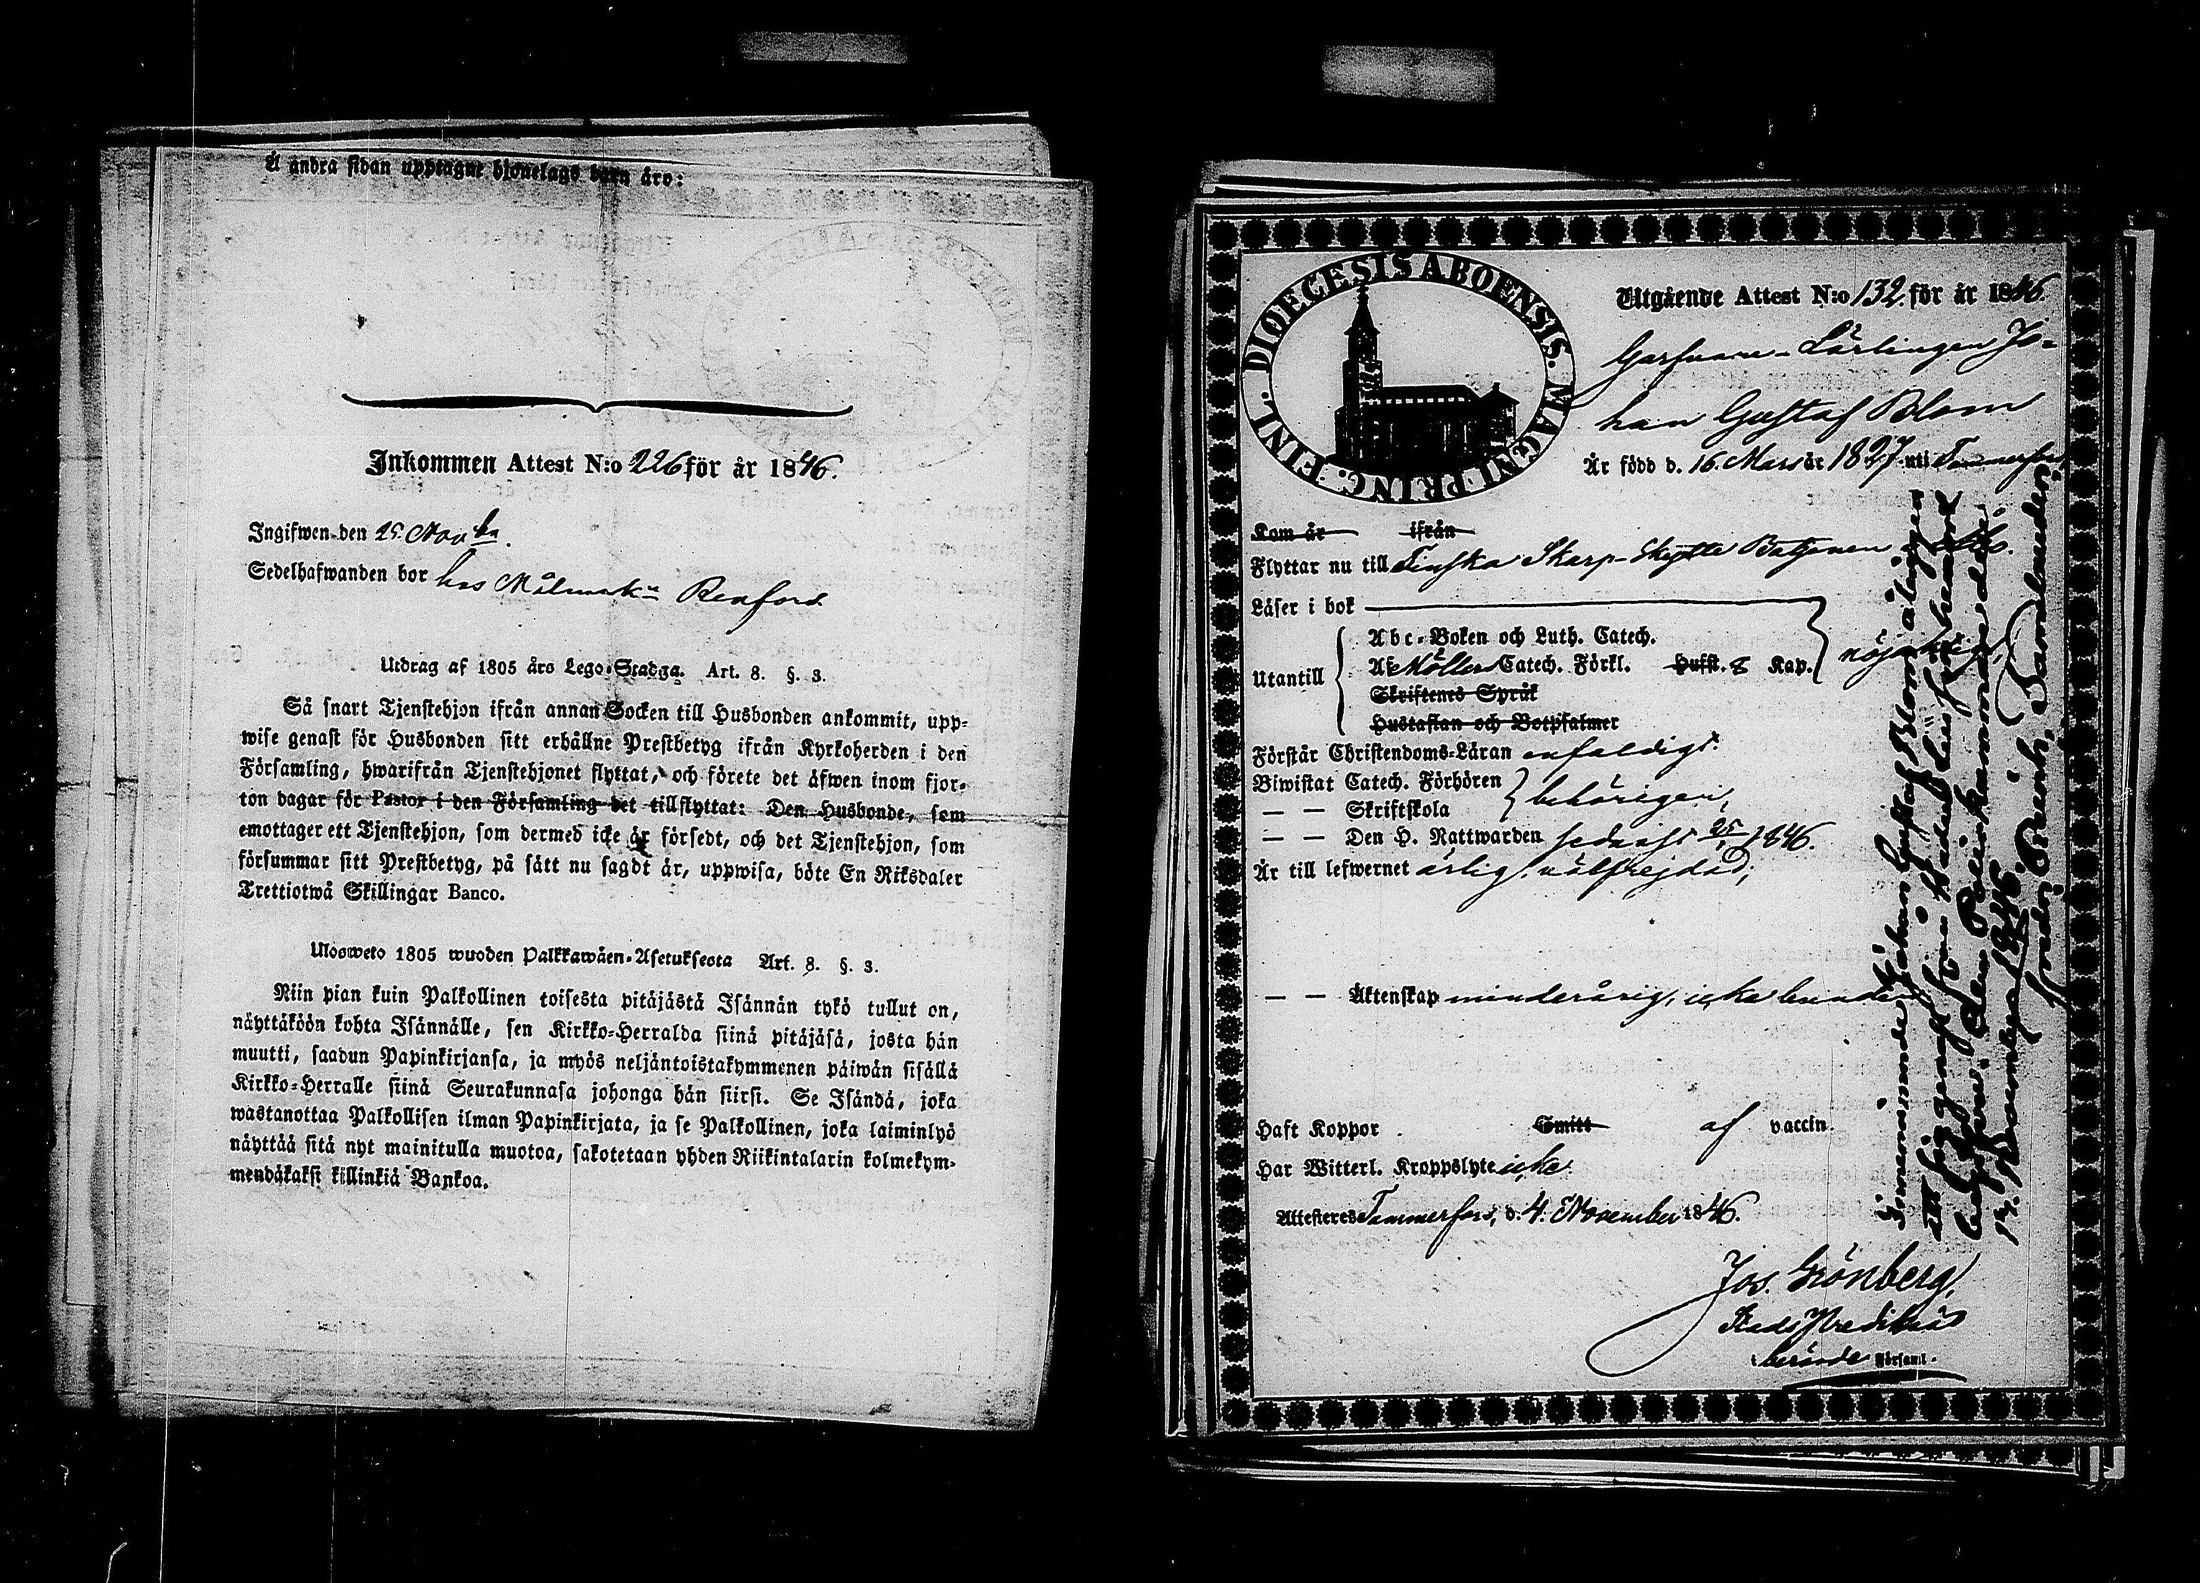 Å andra sidan upptagne hjonelags barn äro:
Inkommen Attest N:o 226 för år 1846.
Ingifwen den 25 Nov
Sedelhafwanden bor hos Målm Renfors
Utdrag af 1805 års Lego-Stadga. Art. 8. §. 3.
Så snart Tjenstehjon ifrån annan Socken till Husbonden ankommit, upp-
wise genast för Husbonden sitt erhållne Prestbetyg ifrån Kyrkoherden i den
Församling, hwarifrån Tjenstehjonet flyttat, och förete det äfwen inom fjor-
ton dagar för Pastor i den Församling det tillflyttat: Den Husbonde, som
emottager ett Tjenstehjon, som dermed icke är försedt, och det Tjenstehjon, som
försummar sitt Prestbetyg, på sätt nu sagdt är, uppwisa, böte En Riksdaler
Trettiotwå Skillingar Banco.
Ulosweto 1805 wuoden Palkkawäen-Asetuksesta Art. 8. §. 3.
Niin pian kuin Palkollinen toisesta pitäjästä Isännän tykö tullut on,
näyttäköön kohta Isännälle, sen Kirkko-Herralda siinä pitäjäsä, josta hän
muutti, saadun Papinkirjansa, ja myös neljäntoistakymmenen päiwän sisällä
Kirkko-Herralle siinä Seurakunnasa johonga hän siirsi. Se Isändä, joka
wastanottaa Palkollisen ilman Papinkirjata, ja se Palkollinen, joka laiminlyö
näyttää sitä nyt mainitulla muotoa, sakotetaan yhden Riikintalarin kolmekym-
mendäkaksi killinkiä Bankoa.
DIOECESIS ABOENSIS. MAGNI PRINC. FINL.
Utgående Attest N:o 132. för år 1846.
Garfware-Lärlingen Jo-
han Gustaf Blom
Är född d. 16. Mars år 1827 uti Tammerfors
Kom år ifrån
Flyttar nu till Finska Skarp-Skytte Bataljonen i Åbo.
Läser i bok
Utantill
Abc-Boken och Luth. Catech.
Af Möllers Catech. Förkl. Hufst. 8 Kap.
Skriftenes Språk
Hustaflan och Botpsalmer
nöjaktigt,
Förstår Christendoms-Läran enfaldigt.
Biwistat Catech. Förhören
— — Skriftskola
behörigen,
— — Den H. Nattwarden sednast 25 1846.
Är till lefwernet ärlig, välfrejdad;
— — Äktenskap minderårig, icke bunden
Haft Koppor Smitt af vaccin.
Har Witterl. Kroppslyte icke.
Attesteras Tammerfors, d. 4. November 1846.
Jos. Grönberg,
Stads Prædikant
i berörde Församl.
Förenämnde Johan Gustaf Blom åligger
att sig genast
begifva. Åbo
14. November 1846.